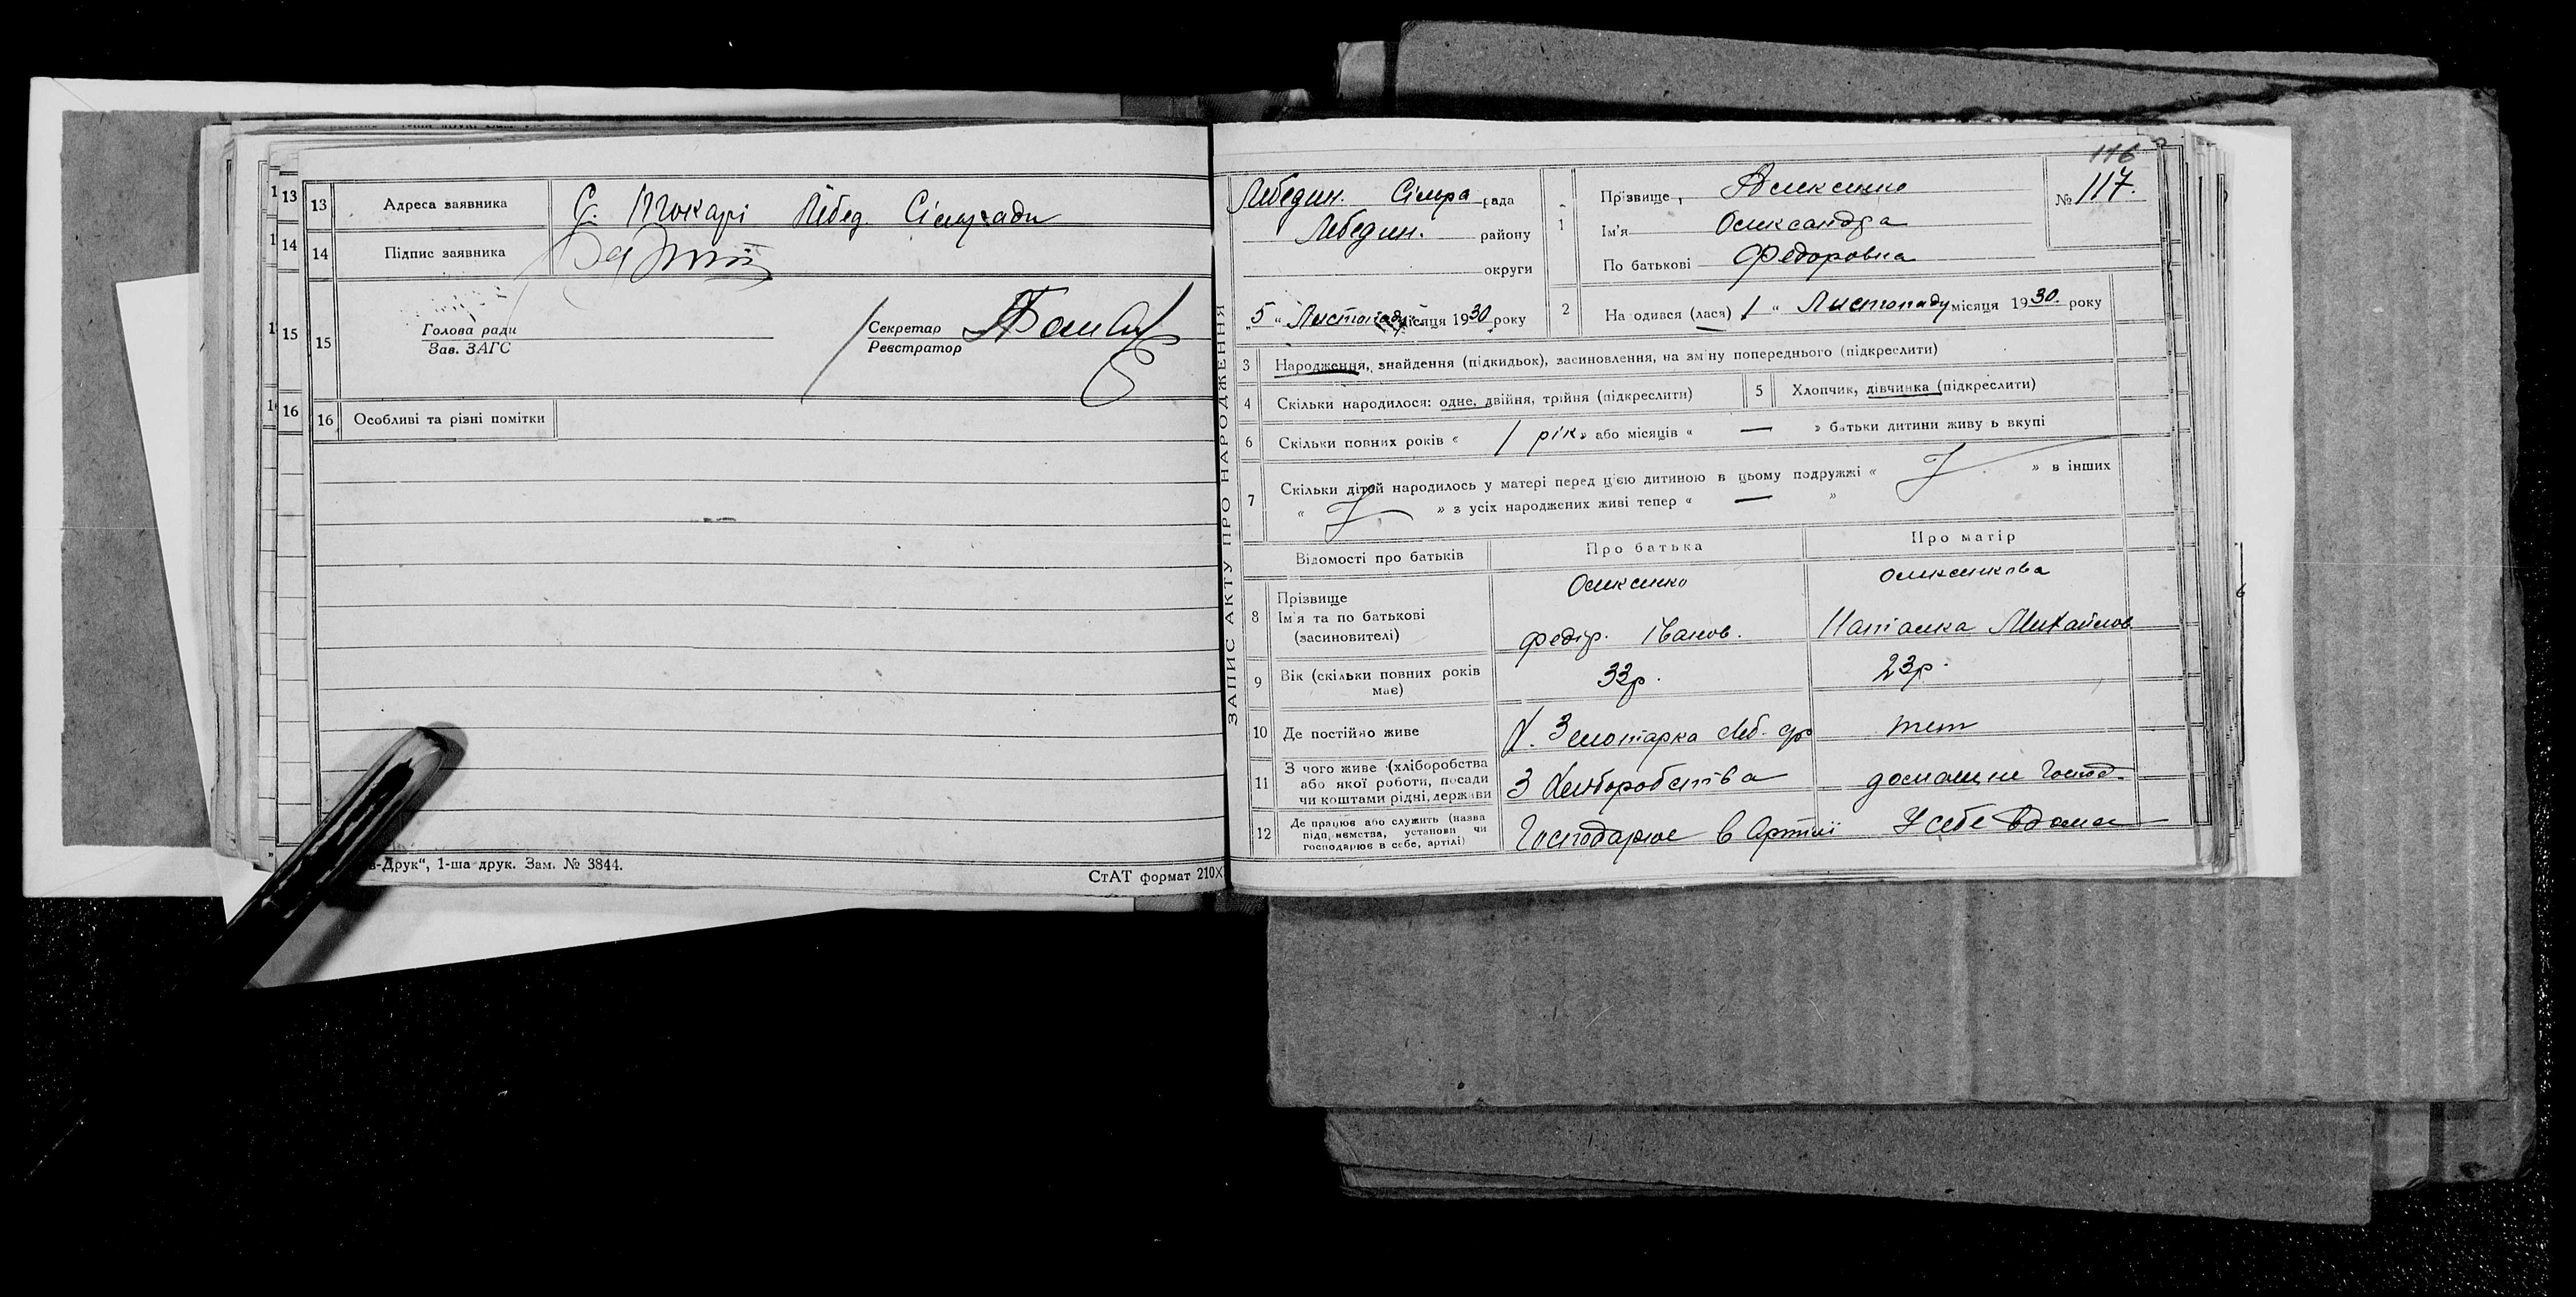 13 Адреса заявника С. Токарі Лебед. Сільради
14 Підпис заявника
15 Голова ради
Зав. ЗАГС
Секретар
Реєстратор
16 Особливі та різні помітки
в-Друк“, 1-ша друк. Зам. № 3844.
СтАТ формат 210X
ЗАПИС АКТУ ПРО НАРОДЖЕННЯ
116
№ 117.
Лебедин. Сільра рада
Лебедин. району
округи
„5“ Листопаду місяця 1930 року
1 Прізвище Алексенко
Ім'я Олександра
По батькові Федоровна
2 На одився (лася) 1 “ Листопаду місяця 1930. року
3 Народження, знайдення (підкидьок), засиновлення, на зміну попереднього (підкреслити)
4 Скільки народилося: одне, двійня, трійня (підкреслити)
5 Хлопчик, дівчинка (підкреслити)
6 Скільки повних років « 1 рік » або місяців « — » батьки дитини живу ь вкупі
7 Скільки дітей народилось у матері перед цією дитиною в цьому подружжі « » в інших
« » з усіх народжених живі тепер « — »
Відомості про батьків Про батька Про матір
8 Прізвище Олексенко Олексенкова
Ім'я та по батькові
(засиновителі) Федір. Іванов. Наталка Михайлов
9 Вік (скільки повних років має) 33р. 23р.
10 Де постійно живе Х. Золотарка Леб. р. тет
11 З чого живе (хліборобства
або якої роботи, посади
чи коштами рідні, держави З Хліборобства домашнє Господ.
12 Де працює або служить (назва
підп,иємства, установи чи
господарює в себе, артілі) Господарює в Артілі У себе вдома